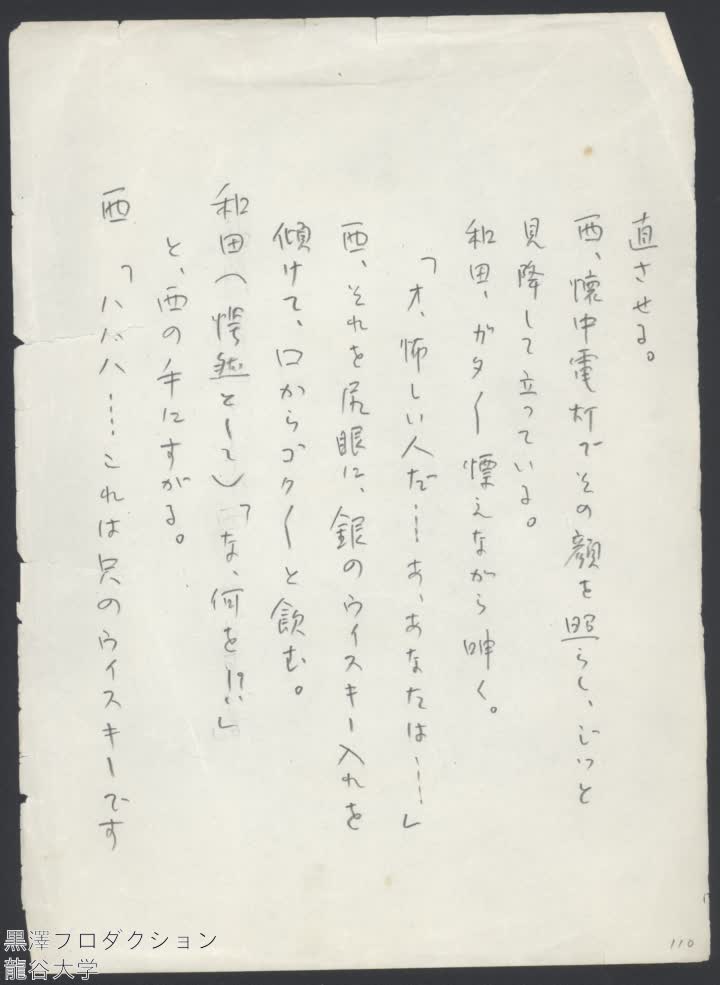 直させる。
西、懐中電灯でその顔を照らし、じっと
見降して立っている。
和田、ガタ〱慄えながら呻く。
「オ、怖しい人だ……あ、あなたは……」
西、それを尻眼に、銀のウイスキー入れを
傾けて、口からゴク〱と飲む。
和田（愕然として）「な、何を!?」
と、西の手にすがる。
西「ハハハ……これは只のウイスキーです
110
黒澤プロダクション
龍谷大学